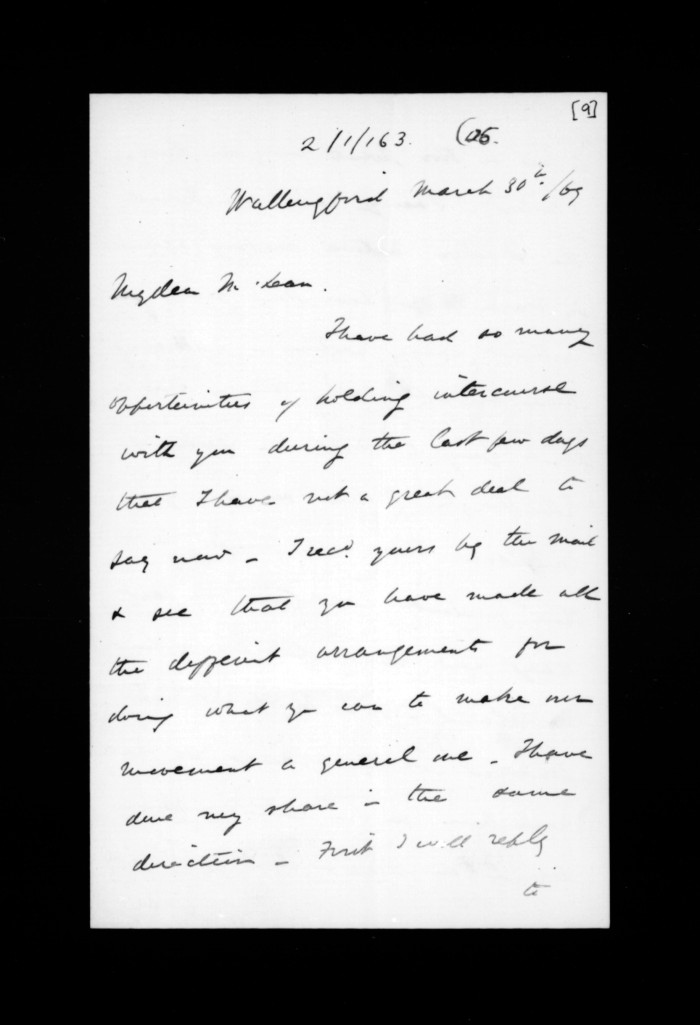 [9]
2/1/163. (105.
Wallingford March 30th /69
My dear Mc.Lean.
I have had so many
opportunities of holding intercourse
with you during the last few days
that I have not a great deal to
say now - I recd. yours by the mail
& see that you have made all
the different arrangements for
doing what you can to make our
movement a general one - I have
done my share in the same
direction - First I will reply
to